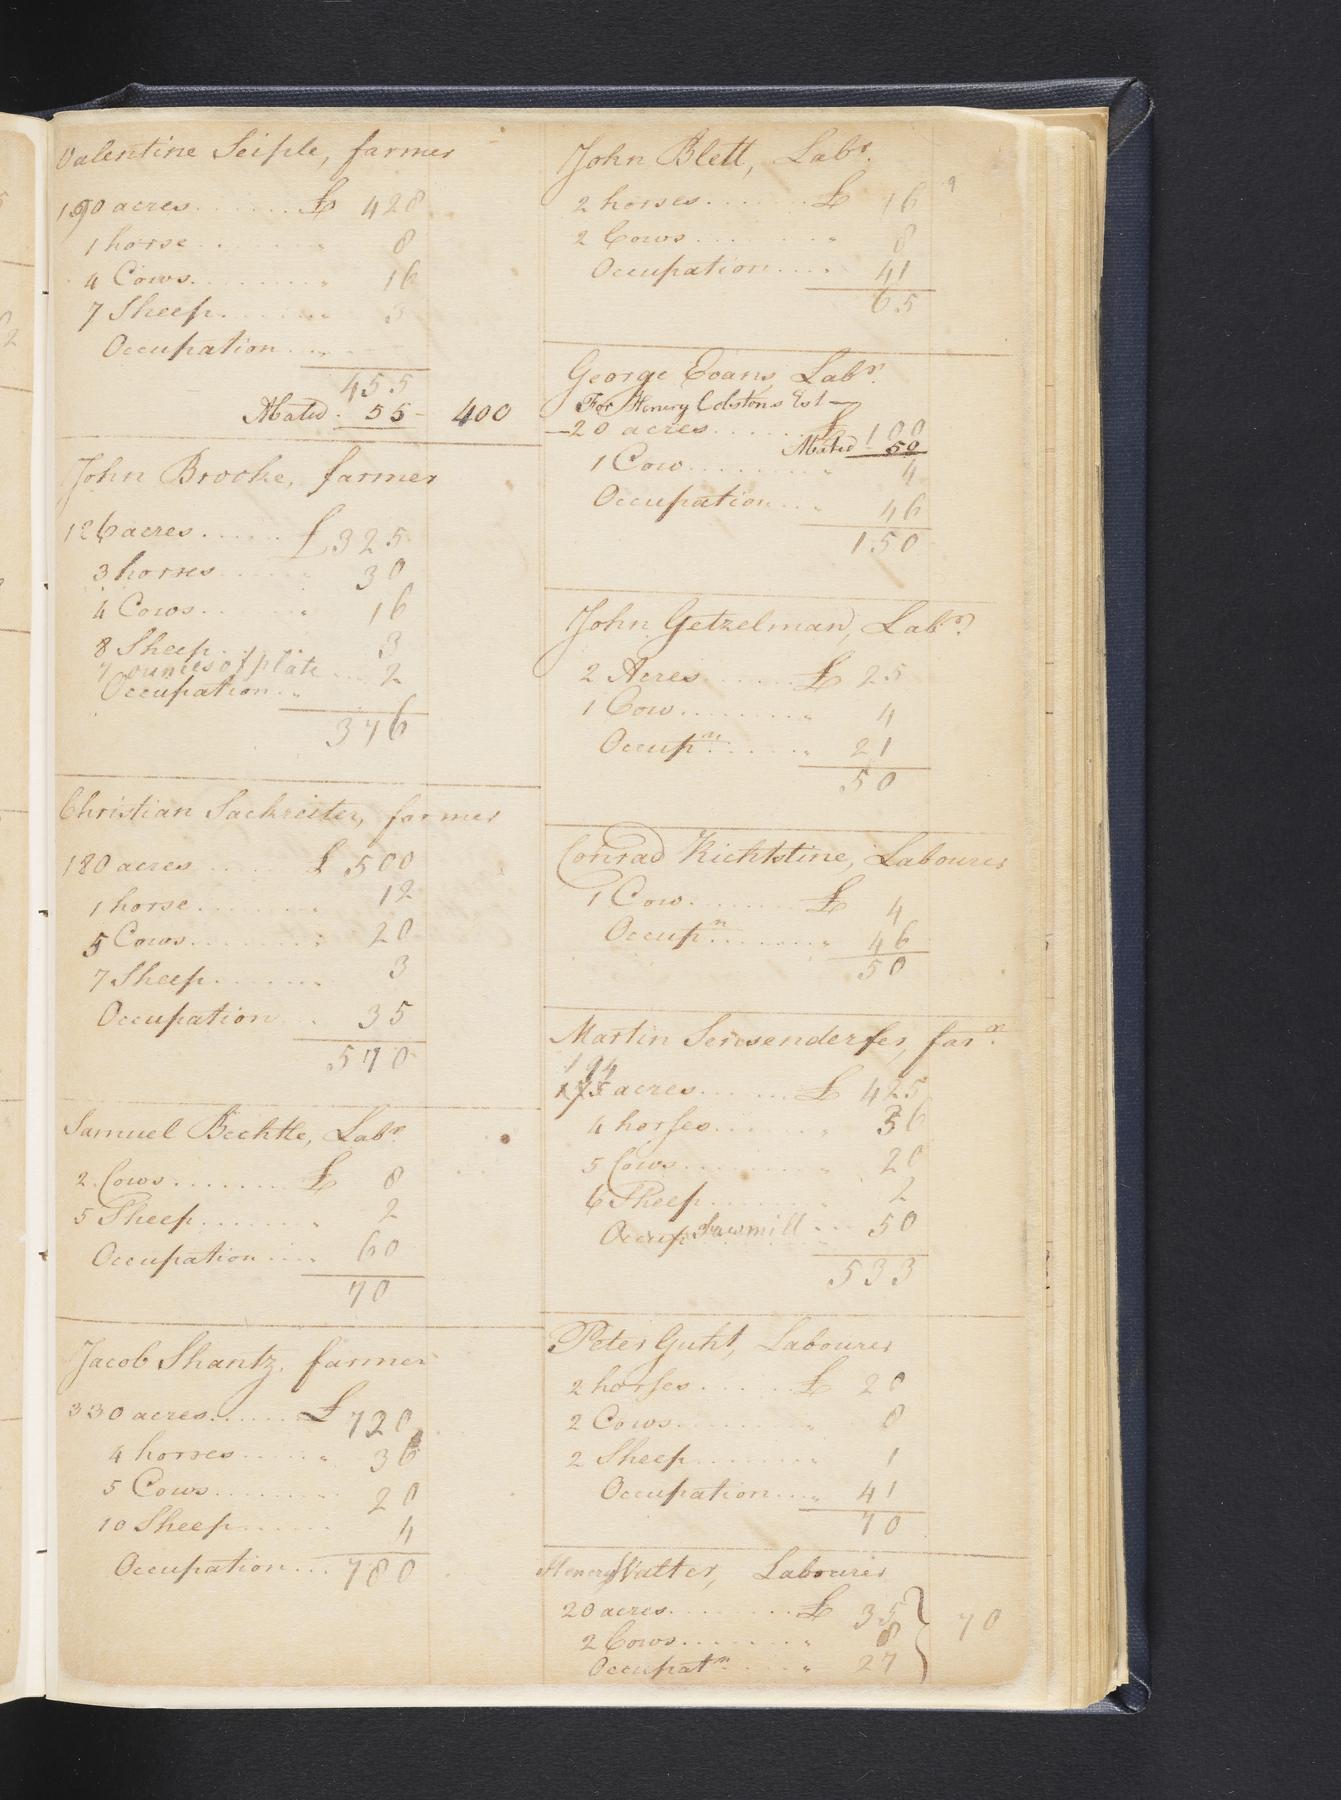 Valentine Seiple, farmer
150 acres ....... £ 428
1 horse ....... " 8
4 Cows ....... " 16
7 Sheep ....... " 3
Occupation ... "
455
Abated . 55 - 400
John Brooke, farmer
126 acres ...... £ 325
3 horses ...... " 30
4 Cows ...... " 16
8 Sheep ... 3
7 ounces of plate ... 2
Occupation .. "
376
Christian Sackreiter, farmer
180 acres ...... £ 500
1 horse ....... " 12
5 Cows ....... " 20
7 Sheep ....... " 3
Occupation .. 35
570
Samuel Bechtle, Labr.
2 Cows ....... £ 8
5 Sheep ....... " 2
Occupation .... " 60
70
Jacob Shantz, farmer
330 acres ...... £ 720
4 horses ...... " 36
5 Cows ....... 20
10 Sheep ...... 4
Occupation ... 780
John Blett, Labr.
2 horses ...... £ 16
2 Cows ....... " 8
Occupation .... 41
65
George Evans, Labr.
For Henry Est
20 acres ...... £ 100
Abated 50
1 Cow ....... " 4
Occupation ... " 46
150
John Getzelman, Labr.
2 Acres ...... £ 25
1 Cow ....... " 4
Occupn. ...... " 21
50
Conrad Kichlstine, Labourer
1 Cow ....... £ 4
Occupn. ...... " 46
50
Martin Sensenderfer, farr.
194
175 acres ...... £ 425
4 horses ...... " 36
5 Cows ....... " 20
6 Sheep ....... " 2
Occup Sawmill ... 50
533
Peter Guht, Labourer
2 horses ...... £ 20
2 Cows ....... " 8
2 Sheep ....... " 1
Occupation ... " 41
70
Henry Walter, Labourer
20 acres ....... £ 35
2 Cows ....... " 8 } 70
Occupatn. .... " 27